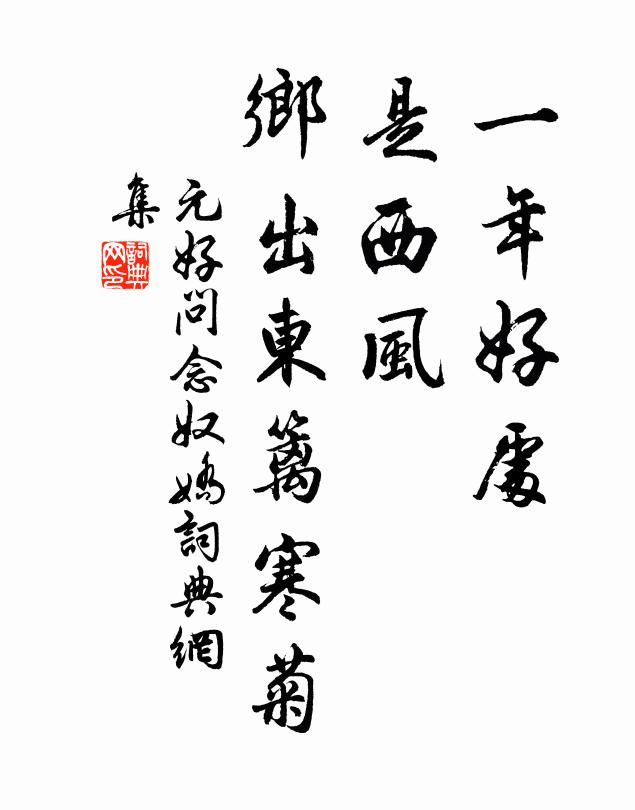 一年好處
是西風
鄉出東籬寒菊
元好問念奴嬌詞典網
集
詞典网印